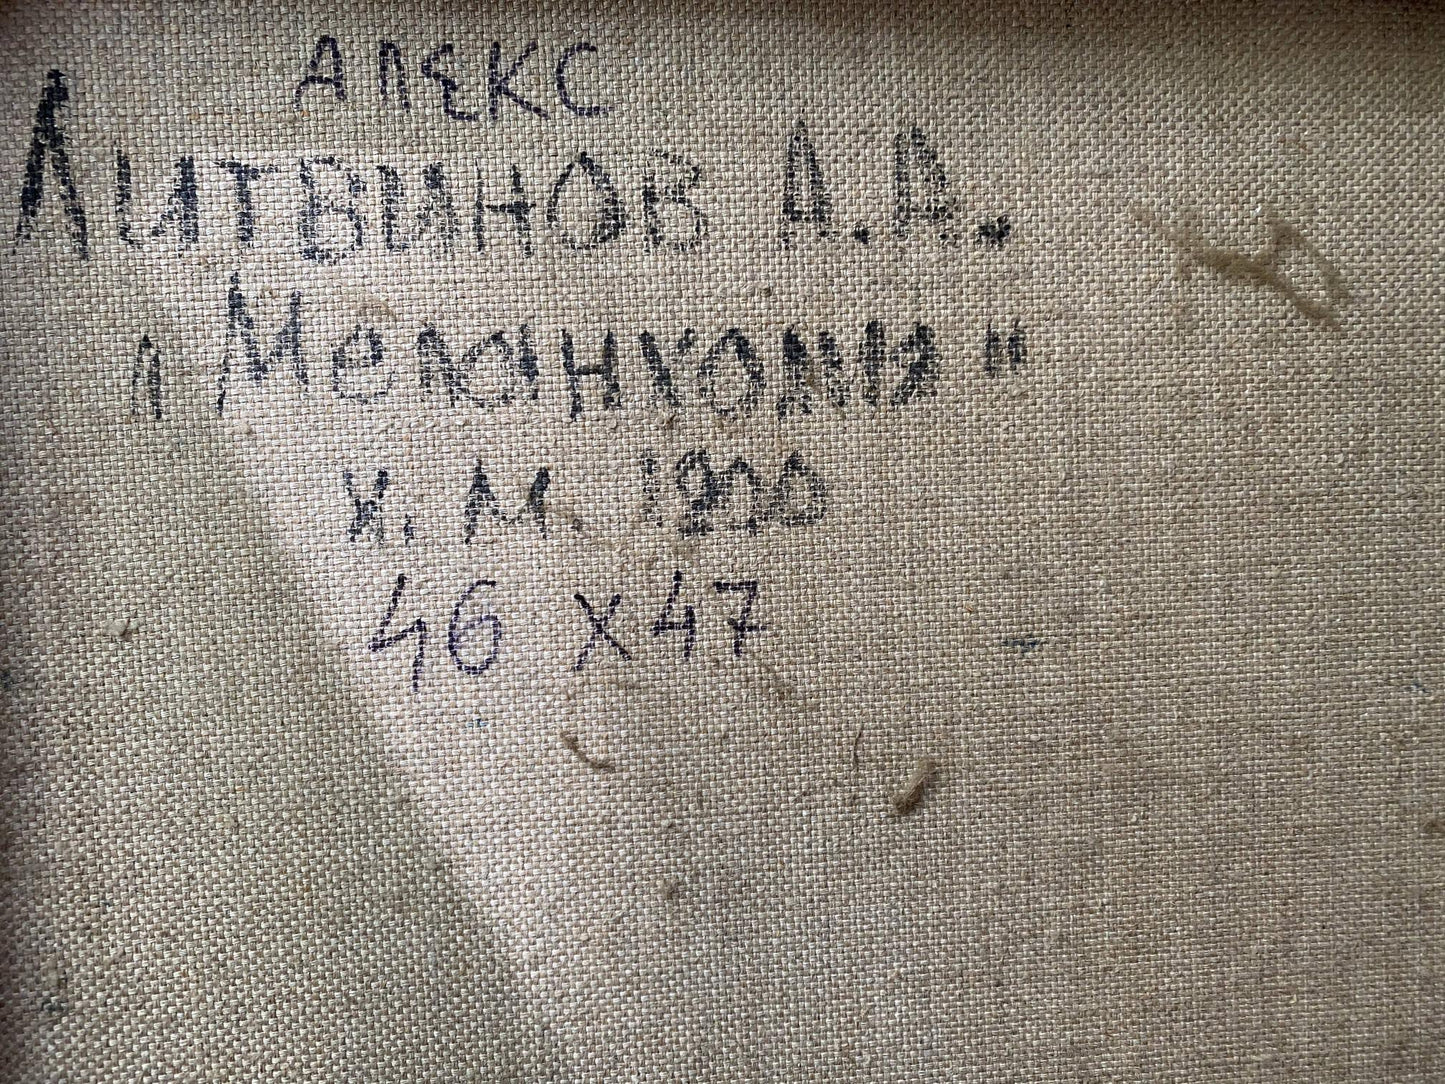 АЛЕКС
Литвинов А.А.
"Меланхолия"
х. м.
46 х 47